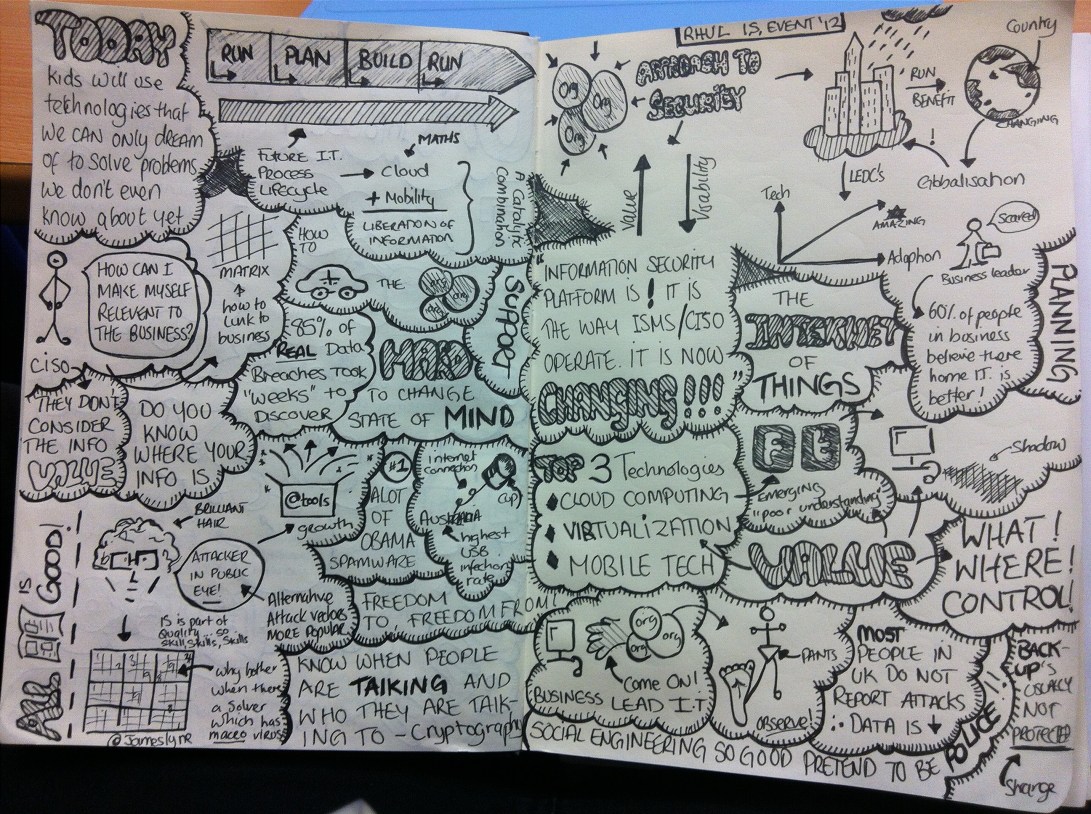 TODAY
kids will use
technologies that
we can only dream
of to solve problems
we don't even
know about yet
RUN
PLAN
BUILD
RUN
FUTURE I.T.
PROCESS
Lifecycle
MATHS
Cloud
+ Mobility
LIBERATION OF
INFORMATION
A Catalytic
Combination
HOW CAN I
MAKE MYSELF
RELEVENT TO
THE BUSINESS?
CISO
MATRIX
how to
link to
business
HOW
TO
THE
org
org
org
SUPPORT
85% of
REAL Data
Breaches Took
"weeks" to
Discover
HARD
TO CHANGE
STATE OF MIND
THEY DON'T
CONSIDER
THE INFO
VALUE
DO YOU
KNOW
WHERE YOUR
INFO IS
@tools
growth
#1
ALOT
OF
OBAMA
SPAMWARE
Internet
connection
cup
Australia
highest
USB
infection
rate
IS
GOOD!
BRILLIANT
HAIR
ATTACKER
IN PUBLIC
EYE!
IS is part of
Quality, so
Skill, Skills, Skills
Alternative
Attack vectors
MORE Popular
FREEDOM
TO, FREEDOM FROM!
why bother
when there
a Solver
which has
macro virus
@Jameslyne
KNOW WHEN PEOPLE
ARE TALKING AND
WHO THEY ARE TALK-
ING TO - Cryptography
RHUL IS, EVENT '12
Org
Org
Org
APPROACH TO
SECURITY
Value
Usability
RUN
BENEFIT
Country
CHANGING
!
LEDC's
Globalisation
Tech
AMAZING
Adoption
Scared!
Business leader
"INFORMATION SECURITY
PLATFORM IS ! IT IS
THE WAY ISMS/CISO
OPERATE. IT IS NOW
CHANGING!!!"
THE
INTERNET
OF
THINGS
60% of people
in business
believe there
home IT. is
better!
PLANNING
TOP 3 Technologies
CLOUD COMPUTING
VIRTUALIZATION
MOBILE TECH
emerging
"poor understanding"
Shadow
VALUE
WHAT!
WHERE!
CONTROL!
org
org
org
Come ON!
BUSINESS LEAD I.T
PANTS
OBSERVE!
MOST
PEOPLE IN
UK DO NOT
REPORT ATTACKS
∴ DATA IS ↓
BACK-
UP's
USUALLY
NOT
PROTECTED
Strange
SOCIAL ENGINEERING SO GOOD PRETEND TO BE POLICE